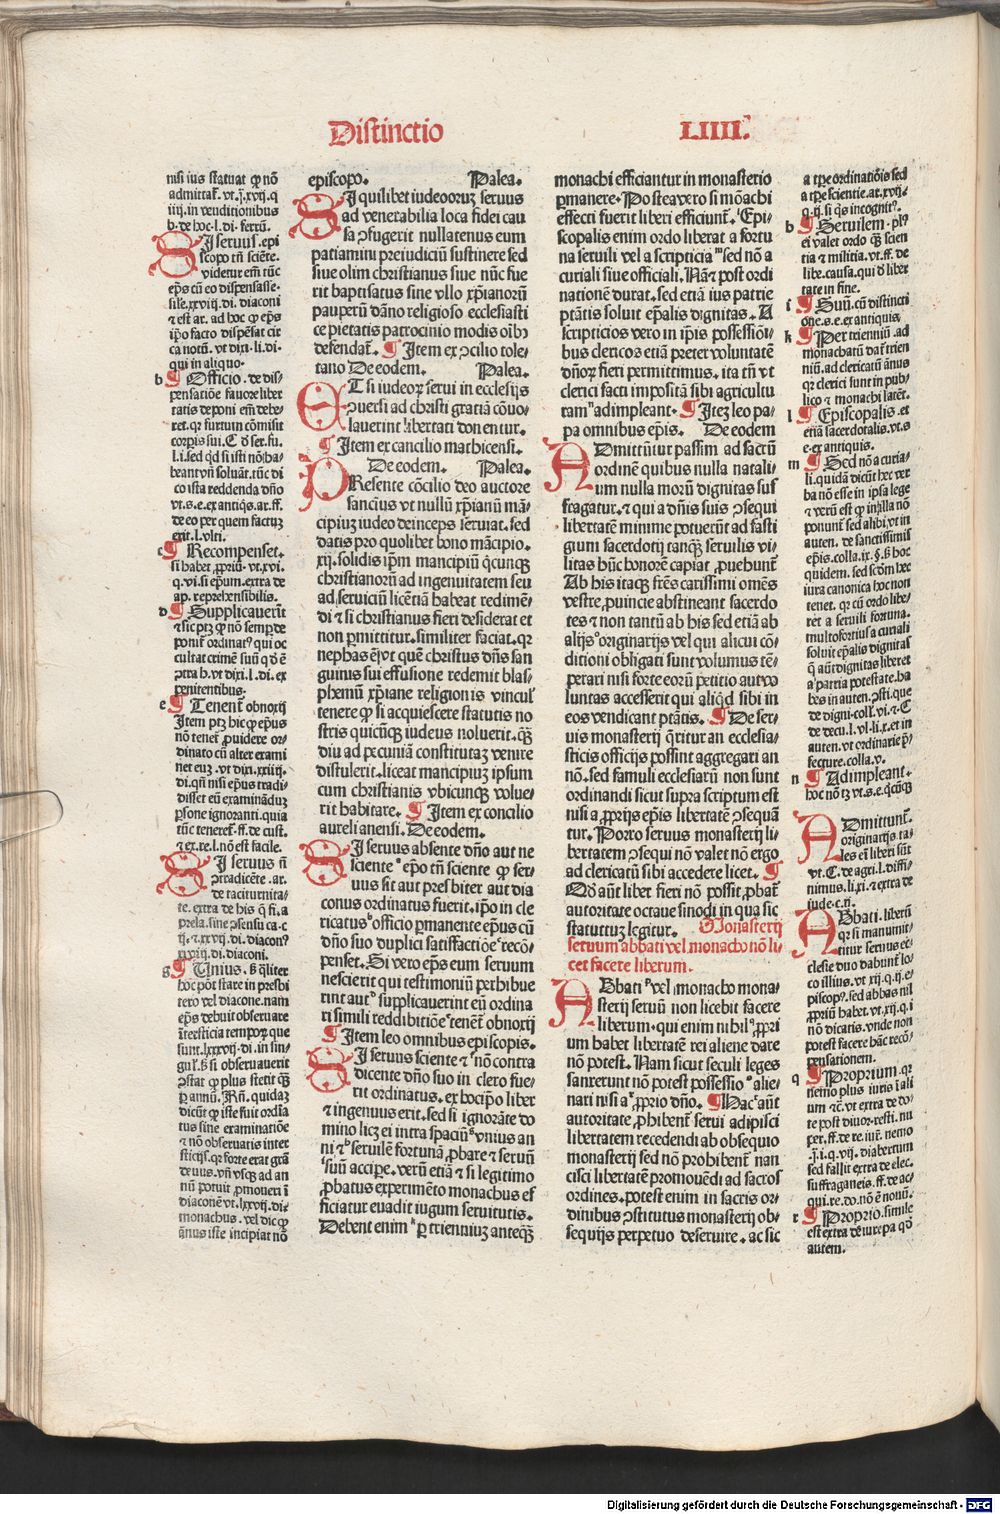 Distinctio LIIII.
nisi ius statuat ꝙ nō
admittat᷑. vt. j̄. xvij. q
iiij. in venditionibus
b. de hoc. l. di. ferrū.
SI seruus. epi
scopo tn̄ sciēte.
videtur em̄ tūc
ep̄s cū eo dispensasse.
sile. xxviij. di. diaconi
⁊ est ar. ad hoc ꝙ ep̄s
ip̄o facto dispēsat cir
ca notū. vt di xi. l. di.
qui in aliquo.
b ¶ Officio. de dis/
pensatiōe fauore liber
tatis deponi em̄ debe/
ret. qr furtum cōmisit
corpis sui. C. d̄ ser. fu.
l. i. sed qd si isti nō ha/
beant vn̄ soluāt. tūc di
co ista reddenda dn̄o
vt. s. e. ex antiq̄s. ar. ff.
de eo per quem factuꝫ
erit. l. vlti.
c ¶ Recompenset.
si habet ꝓpriū. vt. xvi.
q. vi. si ep̄um. extra de
ap. reprehensibilis.
d ¶ Supplicauerūt
⁊ sic ptꝫ ꝙ nō semp de
ponit᷑ ordinatꝰ qui oc
cultat crimē suū qd̄ ē
ꝯtra b. vt di xi. l. di. ex
penitentibus.
e ¶ Tenent᷑ obnoxij
Item ptꝫ hic ꝙ ep̄us
nō tenet᷑ ꝓuidere or/
dinato cū alter exami
net euꝫ. vt di xi. xxiiij.
di. qn̄ nisi ep̄us tradi/
disset eū examinādū
ꝑsone ignoranti. quia
tūc teneret᷑. ff. de cust.
⁊ ex. re. l. nō est facile.
SI seruus n̄
ꝯtradicēte. ar.
de taciturnita/
te. extra de his q̄ fi. a
prela. sine ꝯsensu ca. c
ij. ⁊. xxvij. di. diaconꝰ
xxviij. di. diaconi.
g ¶ Unius. s̄ q̄liter
hoc pōt stare in presbi
tero vel diacone. nam
ep̄s debuit obseruare
īterstitia tempoꝝ que
sunt. lxxvij. di. in sin/
gulꝭ. s̄ si obseruauerit
ꝯstat ꝙ plus stetit q̄ꝫ
ꝑ annū. Rn̄. quidaꝫ
dicūt ꝙ iste fuit ordīa
tus sine examinatiōe
⁊ nō obseruatis inter
sticijs. qr forte erat grā
de vus. vn̄ vsqꝫ ad an
nū potuit ꝓmoueri ī
diaconē vt. lxxvij. di.
monachus. vel dic ꝙ
ānus iste incipiat nō
episcopo. Palea.
SI quilibet iudeoꝛuꝫ seruus
ad venerabilia loca fidei cau
sa ꝯfugerit nullatenus eum
patiamini preiudiciū sustinere sed
siue olim christianus siue nūc fue
rit baptisatus sine vllo xp̄ianoꝝ
pauperū dāno religioso ecclesiasti
ce pietatis patrocinio modis oībꝫ
defendat᷑. ¶ Item ex ꝯcilio tole/
tano De eodem. Palea.
ET si iudeoꝝ serui in ecclesijs
ꝯuersi ad christi gratiā cōuo/
lauerint libertati donentur.
¶ Item ex concilio mathicensi.
De eodem. Palea.
PResente cōcilio deo auctore
sancimus vt nullꝰ xp̄ianū mā/
cipiuꝫ iudeo deinceps seruiat. sed
datis pro quolibet bono mācipio.
xij. solidis ip̄m mancipiū q̄cunqꝫ
christianoꝝ ad ingenuitatem seu
ad seruiciū licētiā habeat redimē/
di ⁊ si christianus fieri desiderat et
non ꝑmittitur. similiter faciat. qr
nephas ē vt quē christus dn̄s san
guinis sui effusione redemit blas/
phemū xp̄iane religionis vinculꝭ
tenere ꝙ si acquiescere statutis no
stris quicūqꝫ iudeus noluerit. q̄ꝫ
diu ad pecuniā constitutaꝫ venire
distulerit. liceat mancipiuꝫ ipsum
cum christianis vbicunqꝫ volue/
rit habitare. ¶ Item ex concilio
aurelianensi. De eodem.
SI seruus absente dn̄o aut ne
sciente ᵃ ep̄o tn̄ sciente ꝙ ser/
uus sit aut presbiter aut dia
conus ordinatus fuerit. ip̄o in cle
ricatus ᵇ officio ꝑmanente ep̄us cū
dn̄o suo duplici satisfactiōe ᶜ recō/
penset. Si vero ep̄s eum seruum
nescierit qui testimoniū perhibue
rint aut ᵈ supplicauerint eū ordina
ri simili redibitiōe ᵉ tenent᷑ obnoxij
¶ Item leo omnibus episcopis.
SI seruus sciente ⁊ ᶠ nō contra
dicente dn̄o suo in clero fue/
rit ordinatus. ex hoc ip̄o liber
⁊ ingenuus erit. sed si ignorāte do
mino licꝫ ei intra spaciū ᵍ vnius an
ni ⁊ ʰ seruilē fortunā ꝓbare ⁊ seruū
suū accipe. verū etiā ⁊ si legitimo
ꝓbatus experimēto monachus ef
ficiatur euadit iugum seruitutis.
Debent enim ᵏ ꝑ trienniuꝫ anteq̄ꝫ
monachi efficiantur in monasterio
ꝑmanere. Postea vero si mōachi
effecti fuerit liberi efficiunt᷑. ˡ Epi/
scopalis enim ordo liberat a fortu
na seruili vel ascripticia ᵐ sed nō a
curiali siue officiali. Nā ⁊ post ordi
nationē durat. sed etiā ius patrie
ptātis soluit ep̄alis dignitas. A
scripticios vero in ip̄is possessiōi/
bus clericos etiā preter voluntatē
dn̄oꝝ fieri permittimus. ita tn̄ vt
clerici facti impositā sibi agricultu
ram ⁿ adimpleant. ¶ Iteꝫ leo pa/
pa omnibus ep̄is. De eodem
ADmittūtur passim ad sacrū
ordinē quibus nulla natali/
um nulla morū dignitas suf
fragatur. ⁊ qui a dn̄is suis ꝯsequi
libertatē minime potuerūt ad fasti
gium sacerdotij tanqꝫ seruilis vi/
litas hūc honorē capiat ꝓuehunt᷑
Ab his itaqꝫ frēs carissimi omēs
vestre ꝓuincie abstineant sacerdo
tes ⁊ non tantū ab his sed etiā ab
alijs ᵒ originarijs vel qui alicui cō/
ditioni obligati sunt volumus tē/
perari nisi forte eorū petitio aut vo
luntas accesserit qui aliqd sibi in
eos vendicant ptātis. ¶ De ser/
uis monasterij q̄ritur an ecclesia/
sticis officijs possint aggregari an
nō. sed famuli ecclesiarū non sunt
ordinandi sicut supra scriptum est
nisi a ꝓprijs epis libertatē ꝯsequā
tur. Porro seruus monasterij li/
bertatem ꝯsequi non valet nō ergo
ad clericatū sibi accedere licet. ¶
Qd̄ aūt liber fieri nō possit ꝓbat᷑
autoritate octaue sinodi in qua sic
statutuꝫ legitur. Monasterij
seruum abbati vel monacho nō li/
cet facere liberum.
ABbati ᵖ vel monacho mona/
sterij seruū non licebit facere
liberum. qui enim nihil ᑫ ꝓpri
um habet libertatē rei aliene dare
nō potest. Nam sicut seculi leges
sanxerunt nō potest possessio ᵃ alie/
nari nisi a ʳ ꝓprio dn̄o. ¶ Hac ᵃ aūt
autoritate ꝓhibent᷑ serui adipisci
libertatem recedendi ab obsequio
monasterij sed nō prohibent᷑ nan
cisci libertatē promouēdi ad sacros
ordines. potest enim in sacris or/
dinibus ꝯstitutus monasterij ob/
sequijs perpetuo deseruire. ac sic
a tp̄re ordinatiōis sed
a tp̄re scientie. at. xvij.
q. ij. si q̄s incognitꝰ.
b ¶ Seruilem. plꝰ
ei valet ordo q̄ꝫ scien
tia ⁊ militia. vt. ff. de
libe. causa. qui d̄ liber
tate in fine.
i ¶ Suū. cū distincti
one. s. e. ex antiquis.
k ¶ Per triennīū. ad
monachatū dat᷑ trien
niū. ad clericatū ānus
qr clerici sunt in pub/
lico ⁊ monachi latēt.
l ¶ Episcopalis. et
etiā sacerdotalis. vt. s
e. ex antiquis.
m ¶ Sed nō a curia/
li. quidā dicūt hec ver
ba nō esse in ipsa lege
⁊ verū est ꝙ in illa nō
ponunt᷑ sed alibi. vt in
auten. de sanctissimis
ep̄is. colla. ix. §. s̄ hoc
quidem. sed scd̄m hec
iura canonica hoc non
tenet. qr cū ordo libe/
ret a seruili fortuna.
multofortius a curiali
soluit ep̄alis dignitas
q̄ aūt dignitas liberet
a patria potestate. ha
bes in auten. ꝯsti. que
de digni. coll. vi. ⁊. C
de decu. l. vl. li. x. et in
auten. vt ordinarie p̄/
fecture. colla. v.
n ¶ Adimpleant.
hoc nō tꝫ vt. s. e. q̄cūqꝫ
ADmittunt᷑.
originarijs ta/
les ei liberi sūt
vt. C. de agri. l. diffi/
nimus. li. xi. ⁊ extra de
iude. c. ii.
ABbati. liberū
qr si manumit/
titur seruus ec/
clesie duo dabunt lo/
co illius. vt xij. q. ij. e/
piscopꝰ. sed abbas nil
ꝓpriū habet. vt. xij. q. i
nō dicatis. vnde non
potest facere hāc recō/
pensationem.
q ¶ Proprium. qr
nemo plus iuris ī ali
um ⁊c̄. vt extra de do/
te post diuor. resti. nu
per. ff. de re. iur̄. nemo
.j̄. i. q. vij. diabertum
sed fallit extra de elec.
suffraganeis. ff. de ac/
qui. re. do. nō ē nouū.
r ¶ Proprio. simile
est extra de iurepa qd̄
autem.